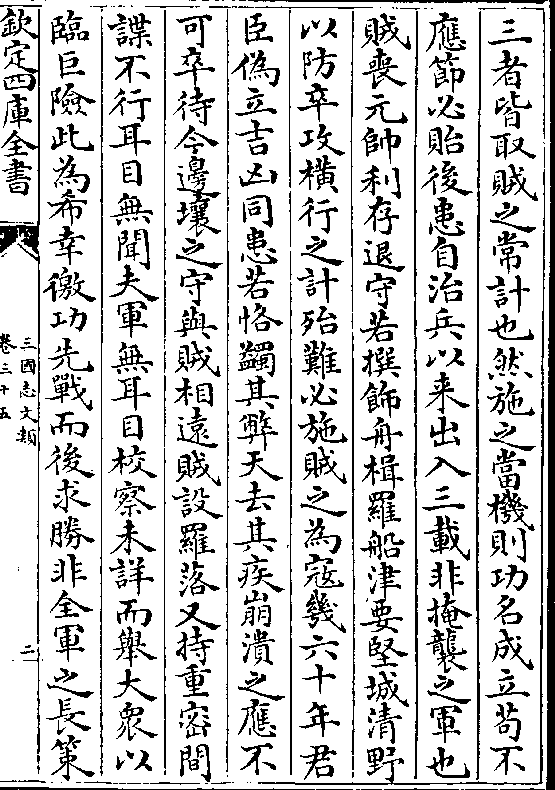 三者皆取賊之常計也然施之當機則功名成立苟不
應節必貽後患自治兵以来出入三載非掩襲之軍也
賊喪元帥利存退守若撰飾舟楫羅船津要堅城清野
以防卒攻橫行之計殆難必施賊之為寇幾六十年君
臣偽立吉凶同患若恪蠲其弊天去其疾崩潰之應不
可卒待今邊壤之守與賊相遠賊設羅落又持重密間
諜不行耳目無聞夫軍無耳目校察未詳而舉大衆以
臨巨險此為希幸徼功先戰而後求勝非全軍之長策
欽定四庫全書
三國志文類
卷三十五
二